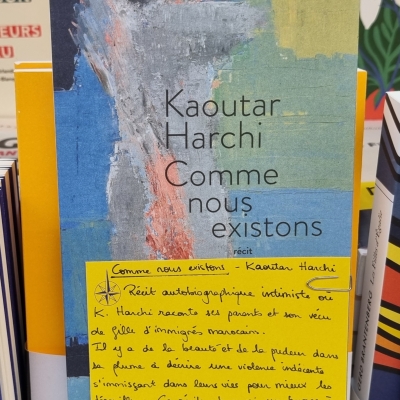 EURS
U
Kaoutar
Harchi
Comme
nous
existons
récit
Comme nous existons - Kaoutar Harchi
Récit autobiographique intimiste ou
K. Harchi raconte ses parents et son vécu
de fille d'immigrés marocain.
Il y a de la beauté et de la pudeur dans
sa plume à décrire une violence indécente
s'immisçant dans leurs vies pour mieux les